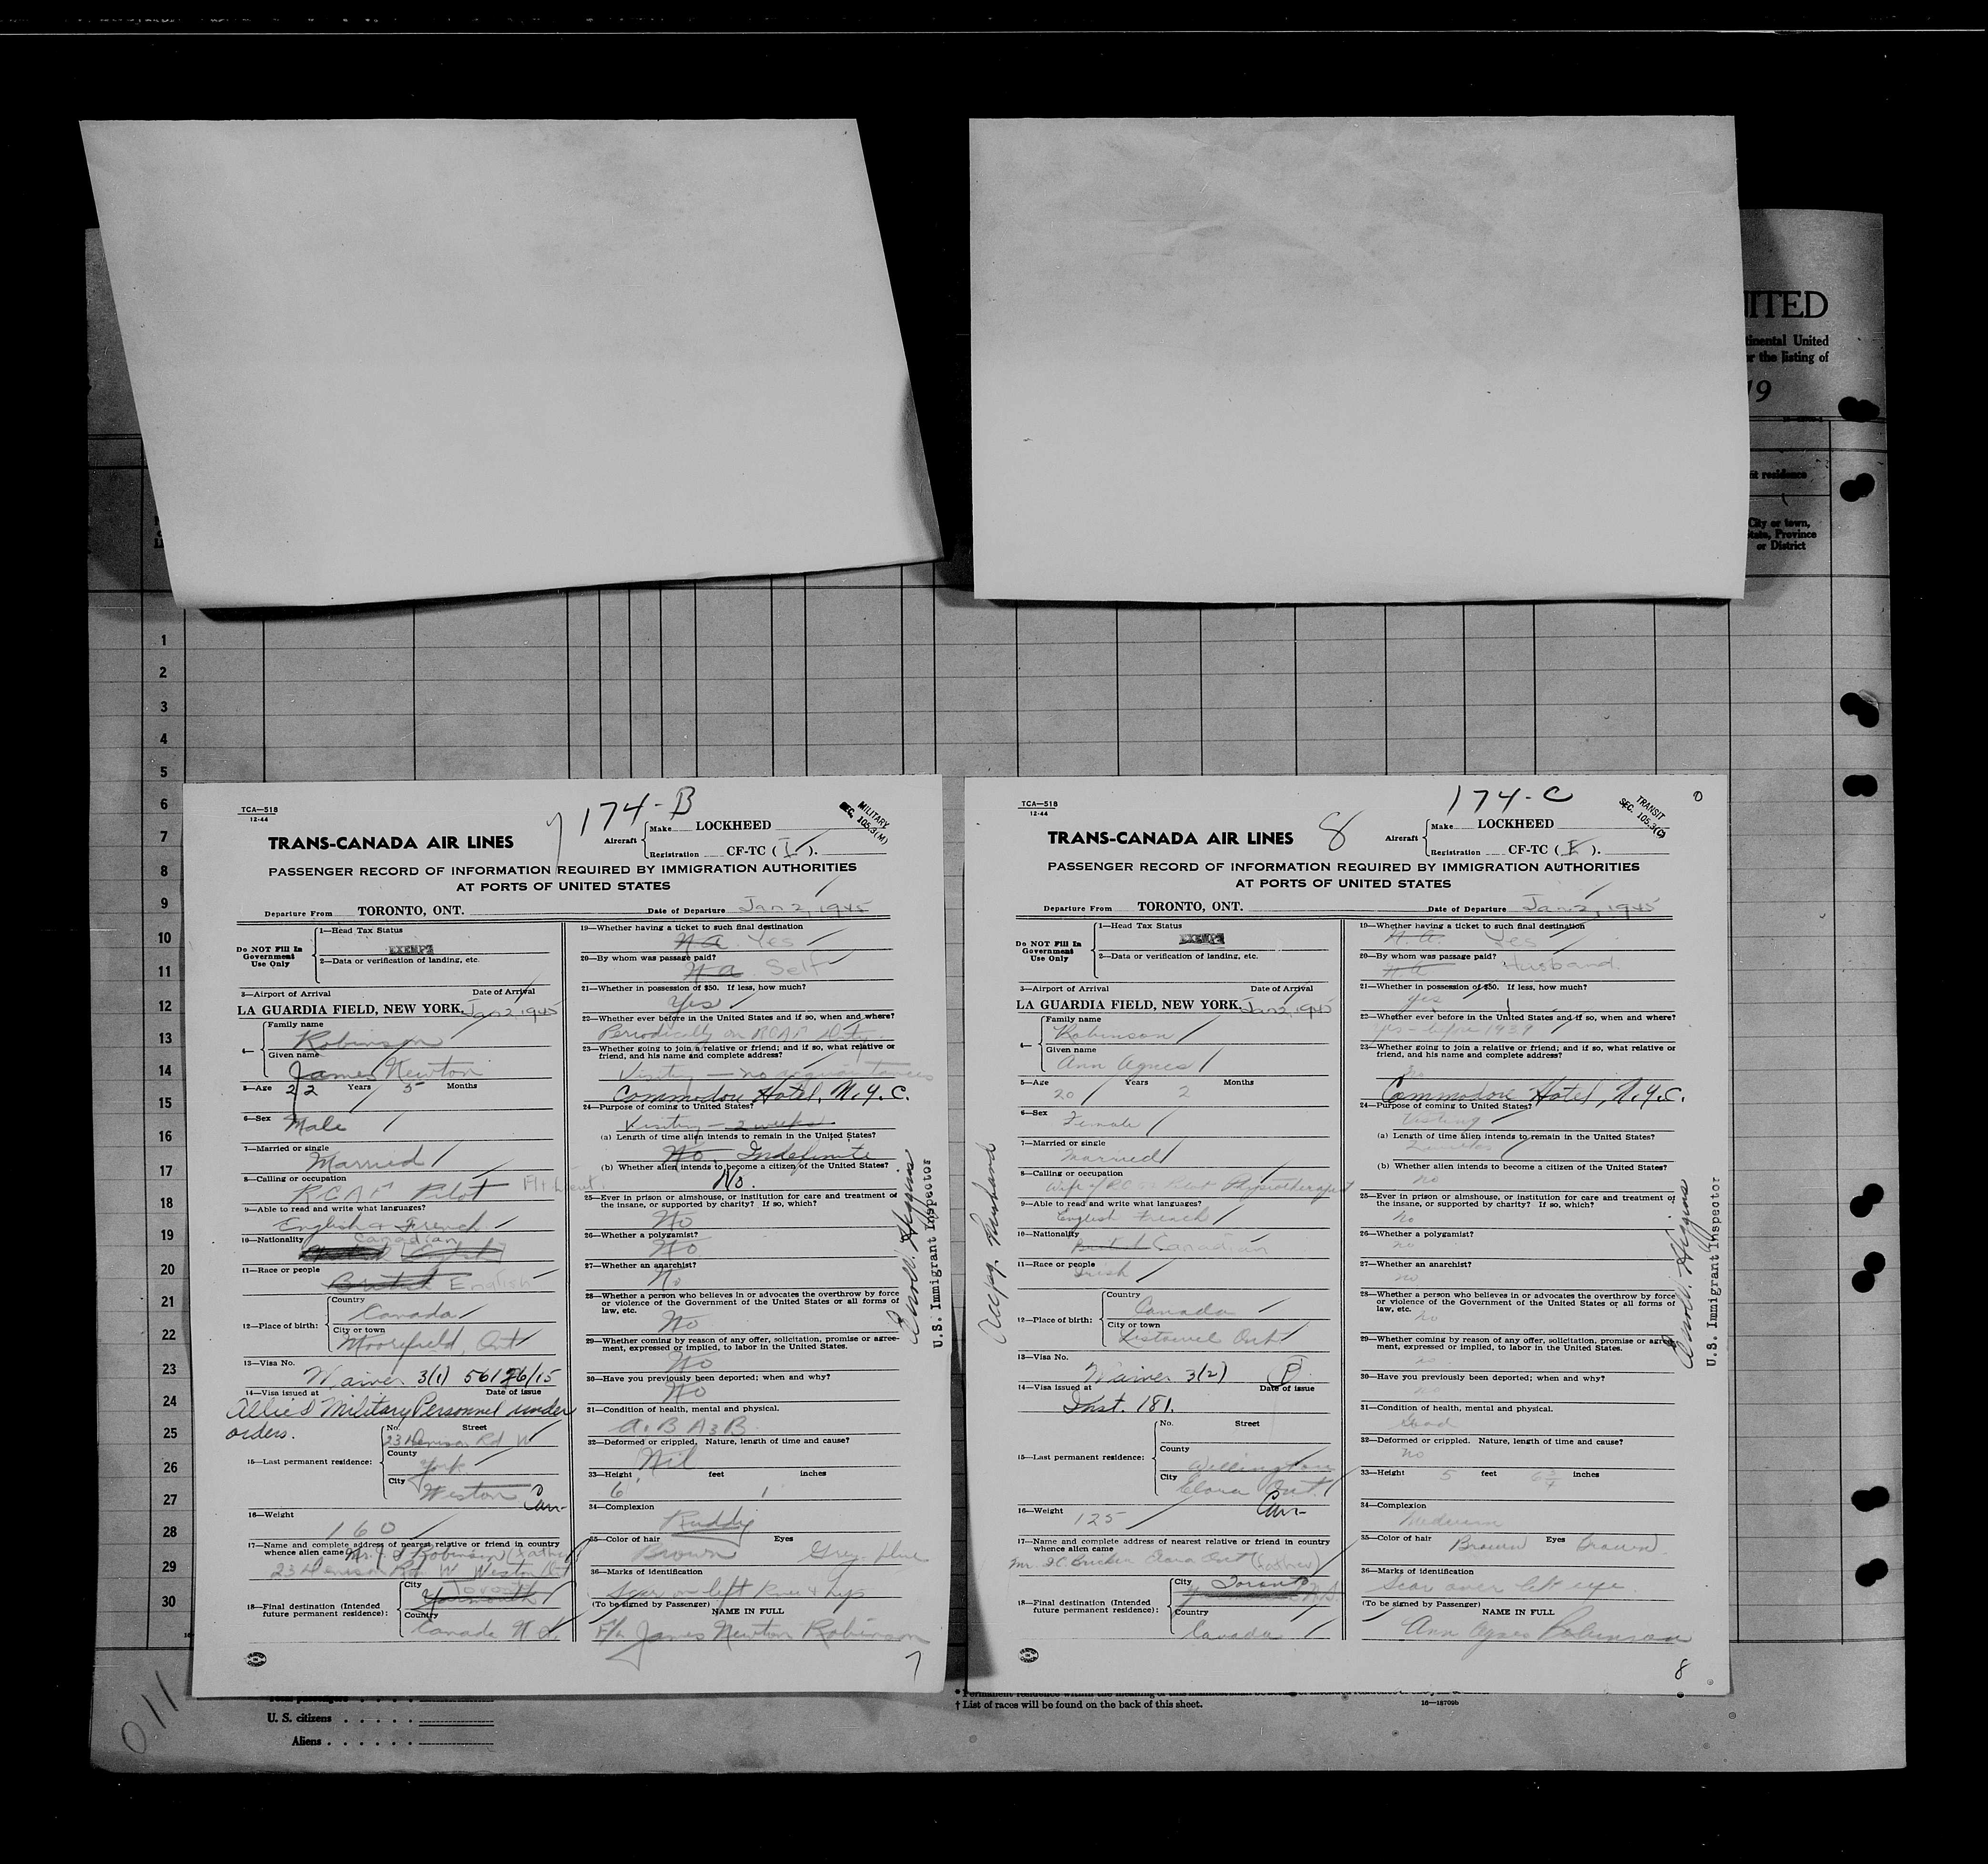 UNITED
tinental United
r the listing of
19
nt residence
City or town,
State, Province
or District
1
2
3
4
5
6
7
8
9
10
11
12
13
14
15
16
17
18
19
20
21
22
23
24
25
26
27
28
29
30
TCA—518
12-44
7
174-B
MILITARY
SEC. 105.3(M)
TRANS-CANADA AIR LINES
Aircraft
Make LOCKHEED
Registration CF-TC ( I ).
PASSENGER RECORD OF INFORMATION REQUIRED BY IMMIGRATION AUTHORITIES
AT PORTS OF UNITED STATES
Departure From TORONTO, ONT.
Date of Departure Jan 2, 1945
Do NOT Fill In
Government
Use Only
1—Head Tax Status
EXEMPT
2—Data or verification of landing, etc.
3—Airport of Arrival Date of Arrival
LA GUARDIA FIELD, NEW YORK. Jan 2, 1945
4— Family name
Robinson
Given name
James Newton
5—Age 22 Years 5 Months
6—Sex
Male
7—Married or single
Married
8—Calling or occupation
RCAF Pilot Flt Lieut.
9—Able to read and write what languages?
English & French
10—Nationality
Canadian
11—Race or people
British English
12—Place of birth:
Country
Canada
City or town
Moorefield, Ont
13—Visa No.
Waiver 3(1) 56126/15
14—Visa issued at Date of issue
Allied Military Personnel under
orders.
15—Last permanent residence:
No. Street
23 Denison Rd W
County
York
City
Weston
Can-
16—Weight
160
17—Name and complete address of nearest relative or friend in country
whence alien came Mr. J. Robinson (Father)
23 Denison Rd. W Weston Ont
18—Final destination (Intended
future permanent residence):
City Toronto
Yarmouth
Country
Canada N.S.
19—Whether having a ticket to such final destination
N A Yes
20—By whom was passage paid?
N A. Self
21—Whether in possession of $50. If less, how much?
Yes
22—Whether ever before in the United States and if so, when and where?
Periodically on RCAF Duty
23—Whether going to join a relative or friend; and if so, what relative or
friend, and his name and complete address?
Visiting — no acquaintances
Commodore Hotel, N.Y.C.
24—Purpose of coming to United States?
Visiting — 2 weeks
(a) Length of time alien intends to remain in the United States?
No. Indefinite
(b) Whether alien intends to become a citizen of the United States?
No.
25—Ever in prison or almshouse, or institution for care and treatment of
the insane, or supported by charity? If so, which?
No
26—Whether a polygamist?
No
27—Whether an anarchist?
No
28—Whether a person who believes in or advocates the overthrow by force
or violence of the Government of the United States or all forms of
law, etc.
No
29—Whether coming by reason of any offer, solicitation, promise or agree-
ment, expressed or implied, to labor in the United States.
No
30—Have you previously been deported; when and why?
No
31—Condition of health, mental and physical.
A1B A3B
32—Deformed or crippled. Nature, length of time and cause?
Nil
33—Height feet inches
6 1
34—Complexion
Ruddy
35—Color of hair Eyes
Brown Grey-blue
36—Marks of identification
Scar on left knee & hip
(To be signed by Passenger)
NAME IN FULL
F/L James Newton Robinson
7
U.S. Immigrant Inspector
TCA—518
12-44
8
174-C
TRANSIT
SEC. 105.3(C)
0
TRANS-CANADA AIR LINES
Aircraft
Make LOCKHEED
Registration CF-TC ( I ).
PASSENGER RECORD OF INFORMATION REQUIRED BY IMMIGRATION AUTHORITIES
AT PORTS OF UNITED STATES
Departure From TORONTO, ONT.
Date of Departure Jan 2, 1945
Do NOT Fill In
Government
Use Only
1—Head Tax Status
EXEMPT
2—Data or verification of landing, etc.
3—Airport of Arrival Date of Arrival
LA GUARDIA FIELD, NEW YORK. Jan 2, 1945
4— Family name
Robinson
Given name
Ann Agnes
5—Age Years Months
20 2
6—Sex
Female
7—Married or single
Married
8—Calling or occupation
Wife of Physiotherapist
9—Able to read and write what languages?
English French
10—Nationality
British Canadian
11—Race or people
Irish
12—Place of birth:
Country
Canada
City or town
Listowel Ont
13—Visa No.
Waiver 3(2)
14—Visa issued at Date of issue
Inst. 181.
15—Last permanent residence:
No. Street
County
Wellington
City
Elora Ont.
Can-
16—Weight
125
17—Name and complete address of nearest relative or friend in country
whence alien came
Mr. Bricker Elora Ont (Father)
18—Final destination (Intended
future permanent residence):
City Toronto
N.S.
Country
Canada
Accpg. Husband
19—Whether having a ticket to such final destination
N.A. Yes
20—By whom was passage paid?
N A Husband.
21—Whether in possession of $50. If less, how much?
yes
22—Whether ever before in the United States and if so, when and where?
yes - before 1939
23—Whether going to join a relative or friend; and if so, what relative or
friend, and his name and complete address?
No
Commodore Hotel, N.Y.C.
24—Purpose of coming to United States?
Visiting
(a) Length of time alien intends to remain in the United States?
(b) Whether alien intends to become a citizen of the United States?
no
25—Ever in prison or almshouse, or institution for care and treatment of
the insane, or supported by charity? If so, which?
no
26—Whether a polygamist?
no
27—Whether an anarchist?
no
28—Whether a person who believes in or advocates the overthrow by force
or violence of the Government of the United States or all forms of
law, etc.
no
29—Whether coming by reason of any offer, solicitation, promise or agree-
ment, expressed or implied, to labor in the United States.
no
30—Have you previously been deported; when and why?
no
31—Condition of health, mental and physical.
Good
32—Deformed or crippled. Nature, length of time and cause?
no
33—Height 5 feet 6 inches
34—Complexion
Medium
35—Color of hair Brown Eyes Brown.
36—Marks of identification
Scar over left eye
(To be signed by Passenger)
NAME IN FULL
Ann Agnes Robinson
8
U.S. Immigrant Inspector
011
U. S. citizens
Aliens
† List of races will be found on the back of this sheet.
16—18709b